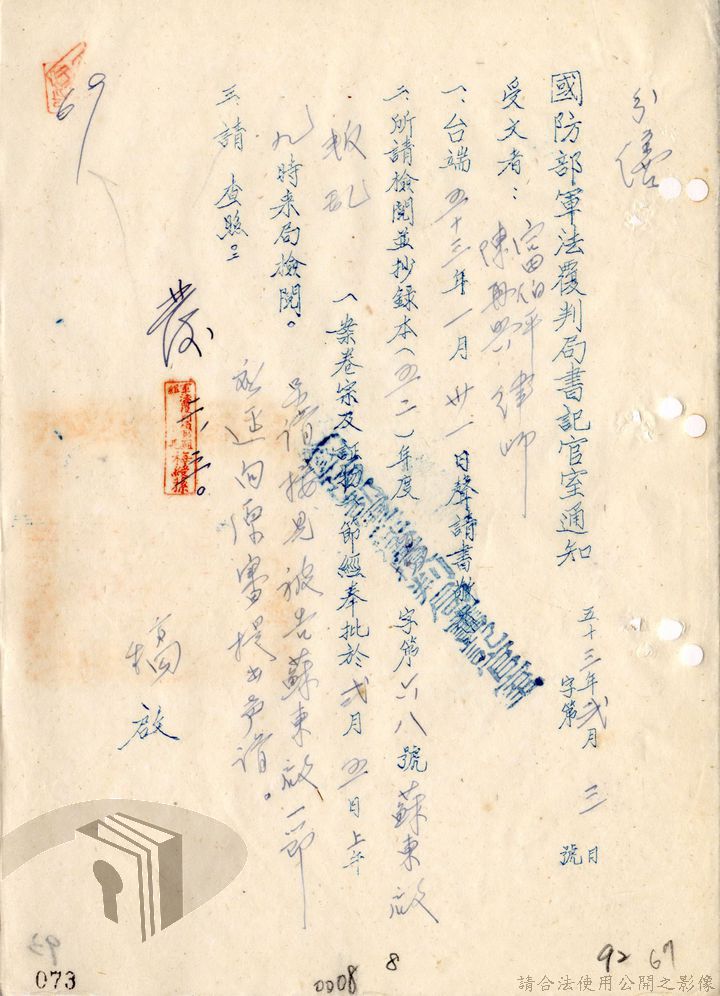 分繕
國防部軍法覆判局書記官室通知
五十三年弍月三日
字第 號
受文者:富伯平
陳舜興 律師
一、台端五十三年一月卅一日聲請書
二、所請檢閱並抄錄本(五二)年度 字第六八號蘇東啟
叛乱
(案卷宗及証物)節經奉批於弍月五日上午
九時来局檢閱。
至請接見被告蘇東啟一節
應逕向原審提出声請。
三、請 查照。
發
二、三。
稿
啟
69
93
073
0008
8
92 67
請合法使用公開之影像